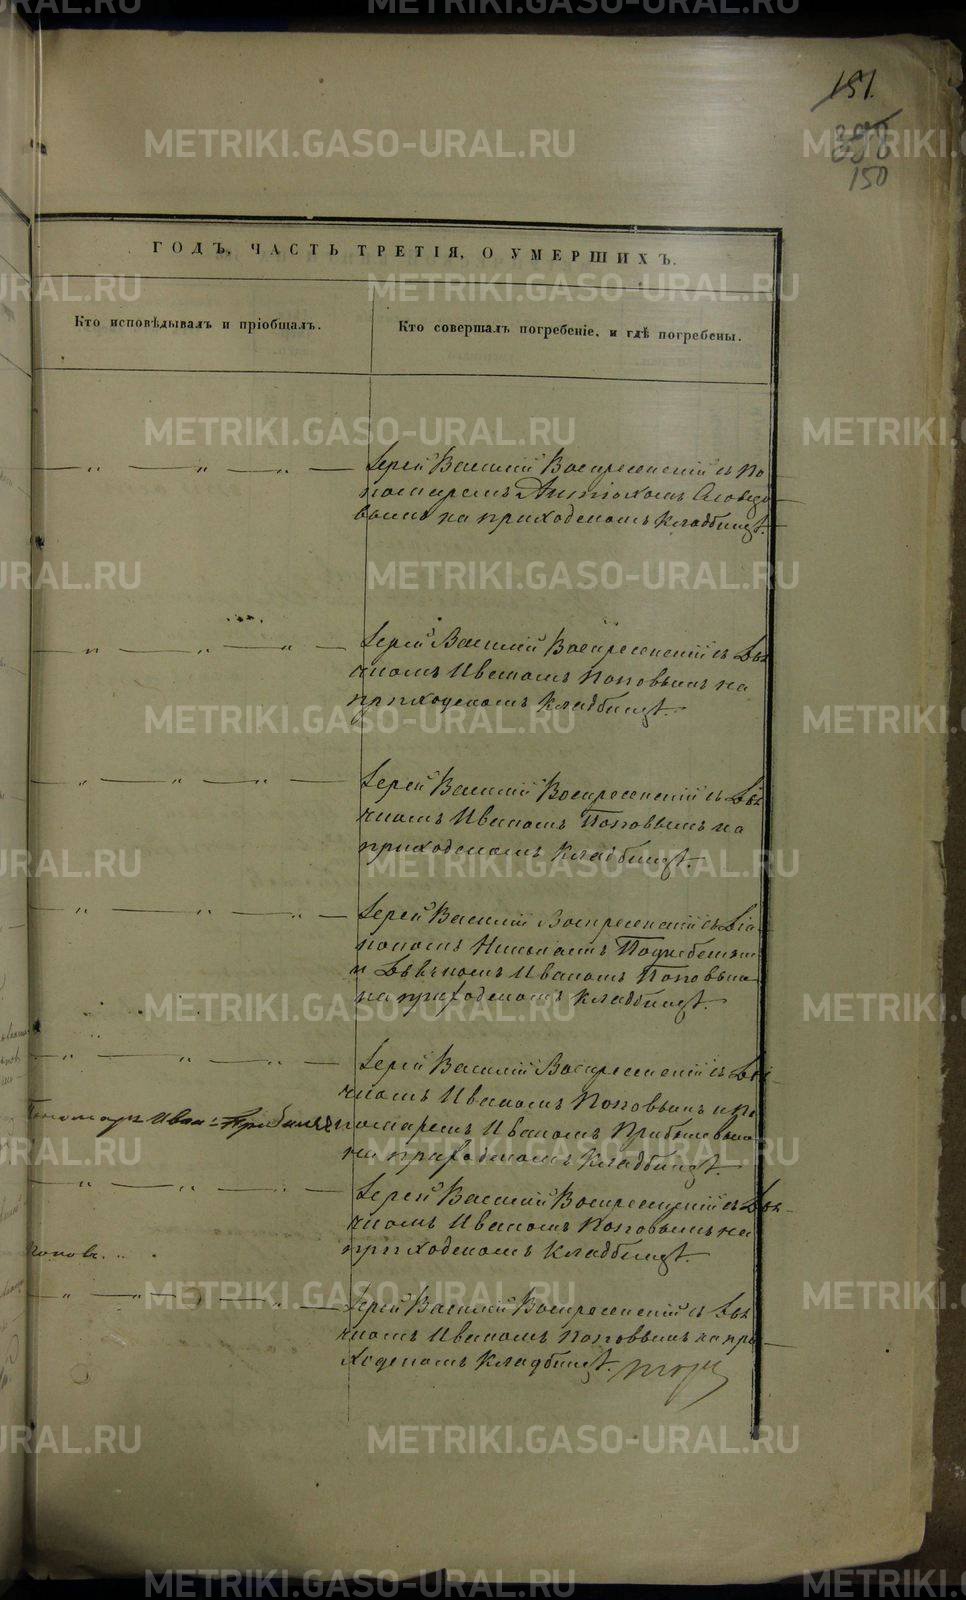 151.
398
150
ГОДЪ, ЧАСТЬ ТРЕТІЯ, О УМЕРШИХЪ.
Кто исповѣдывалъ и пріобщалъ.
Кто совершалъ погребеніе, и гдѣ погребены.
Іерей Василій Воскресенскій съ по
номаремъ Антіохомъ
вымъ на приходскомъ кладбищѣ.
Іерей Василій Воскресенскій съ Дья
чкомъ Иваномъ Поповымъ на
приходскомъ кладбищѣ.
Іерей Василій Воскресенскій съ Дья
чкомъ Иваномъ Поповымъ на
приходскомъ кладбищѣ.
Іерей Василій Воскресенскій съ Діа
кономъ
и Дьячкомъ Иваномъ Поповымъ
на приходскомъ кладбищѣ.
Іерей Василій Воскресенскій съ Дья
чкомъ Иваномъ Поповымъ и по
номаремъ Иваномъ Прибылевымъ
на приходскомъ кладбищѣ.
Пономарь Иван
Іерей Василій Воскресенскій съ Дья
чкомъ Иваномъ Поповымъ на
приходскомъ кладбищѣ.
Іерей Василій Воскресенскій съ Дья
чкомъ Иваномъ Поповымъ на при
ходскомъ кладбищѣ.
METRIKI.GASO-URAL.RU